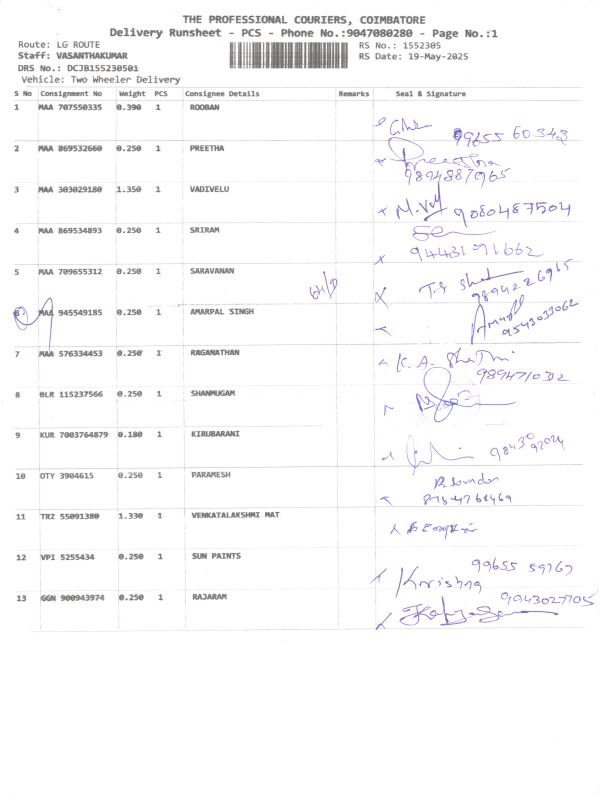 THE PROFESSIONAL COURIERS, COIMBATORE
Delivery Runsheet - PCS - Phone No.:9047080280 - Page No.:1
Route: LG ROUTE
RS No.: 1552305
Staff: VASANTHAKUMAR
RS Date: 19-May-2025
DRS No.: DCJB155230501
Vehicle: Two Wheeler Delivery
S No Consignment No Weight PCS Consignee Details Remarks Seal & Signature
1 MAA 707550335 0.390 1 ROOBAN
99655 60343
2 MAA 869532660 0.250 1 PREETHA
Preetha
9894887965
3 MAA 303029180 1.350 1 VADIVELU
9080487504
4 MAA 869534893 0.250 1 SRIRAM
9443191662
5 MAA 709655312 0.250 1 SARAVANAN
9894226965
6 MAA 945549185 0.250 1 AMARPAL SINGH
9543033062
7 MAA 576334453 0.250 1 RAGANATHAN
9894710312
8 BLR 115237566 0.250 1 SHANMUGAM
9 KUR 7003764879 0.180 1 KIRUBARANI
10 OTY 3904615 0.250 1 PARAMESH
11 TRZ 55091380 1.330 1 VENKATALAKSHMI MAT
12 VPI 5255434 0.250 1 SUN PAINTS
99655 59767
Krishna
13 GGN 900943974 0.250 1 RAJARAM